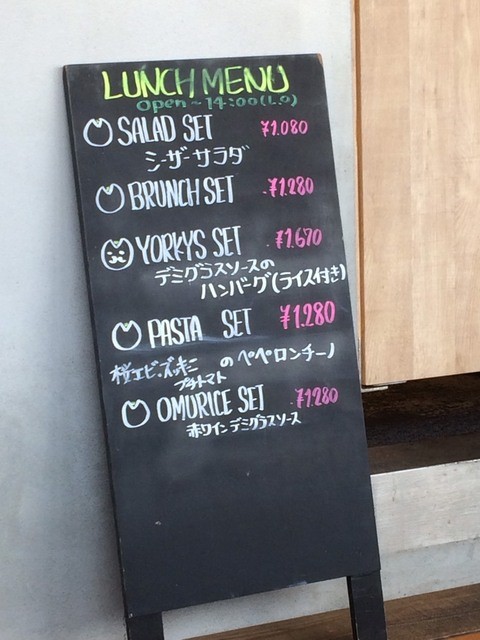 LUNCH MENU
Open ~ 14:00 (L.O)
SALAD SET ¥1.080
シーザーサラダ
BRUNCH SET ¥1.280
YORKYS SET ¥1.670
デミグラスソースの
ハンバーグ(ライス付き)
PASTA SET ¥1.280
桜エビ・ズッキーニ のペペロンチーノ
プチトマト
OMURICE SET ¥1.280
赤ワインデミグラスソース